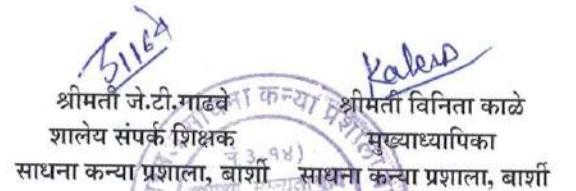 श्रीमती जे.टी.गाढवे
शालेय संपर्क शिक्षक
साधना कन्या प्रशाला, बार्शी
श्रीमती विनिता काळे
मुख्याध्यापिका
साधना कन्या प्रशाला, बार्शी